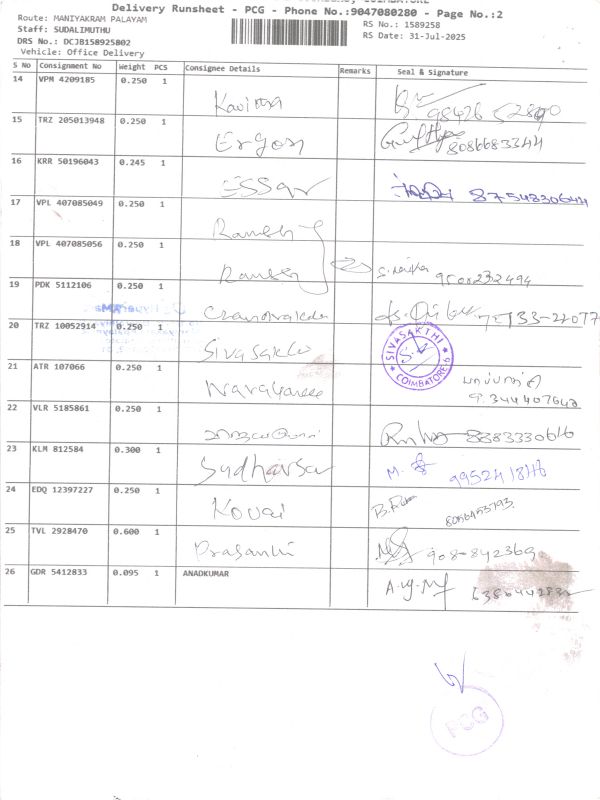 COIMBATORE
Delivery Runsheet - PCG - Phone No.:9047080280 - Page No.:2
Route: MANIYAKRAM PALAYAM
RS No.: 1589258
Staff: SUDALIMUTHU
RS Date: 31-Jul-2025
DRS No.: DCJB158925802
Vehicle: Office Delivery
S No Consignment No Weight PCS Consignee Details Remarks Seal & Signature
14 VPM 4209185 0.250 1 Kavima
15 TRZ 205013948 0.250 1 Ergon 8086683344
16 KRR 50196043 0.245 1 ESSar 8754830644
17 VPL 407085049 0.250 1 Ramesh
18 VPL 407085056 0.250 1 Ramesh 9500232494
19 PDK 5112106 0.250 1
20 TRZ 10052914 0.250 1 Sivasakti SIVASAKTHI COIMBATORE-6
21 ATR 107066 0.250 1 9344407648
22 VLR 5185861 0.250 1 8883330616
23 KLM 812584 0.300 1 Sudharsa M. 9952418146
24 EDQ 12397227 0.250 1 Kovai
25 TVL 2928470 0.600 1 Prasanthi
26 GDR 5412833 0.095 1 ANADKUMAR
PCG